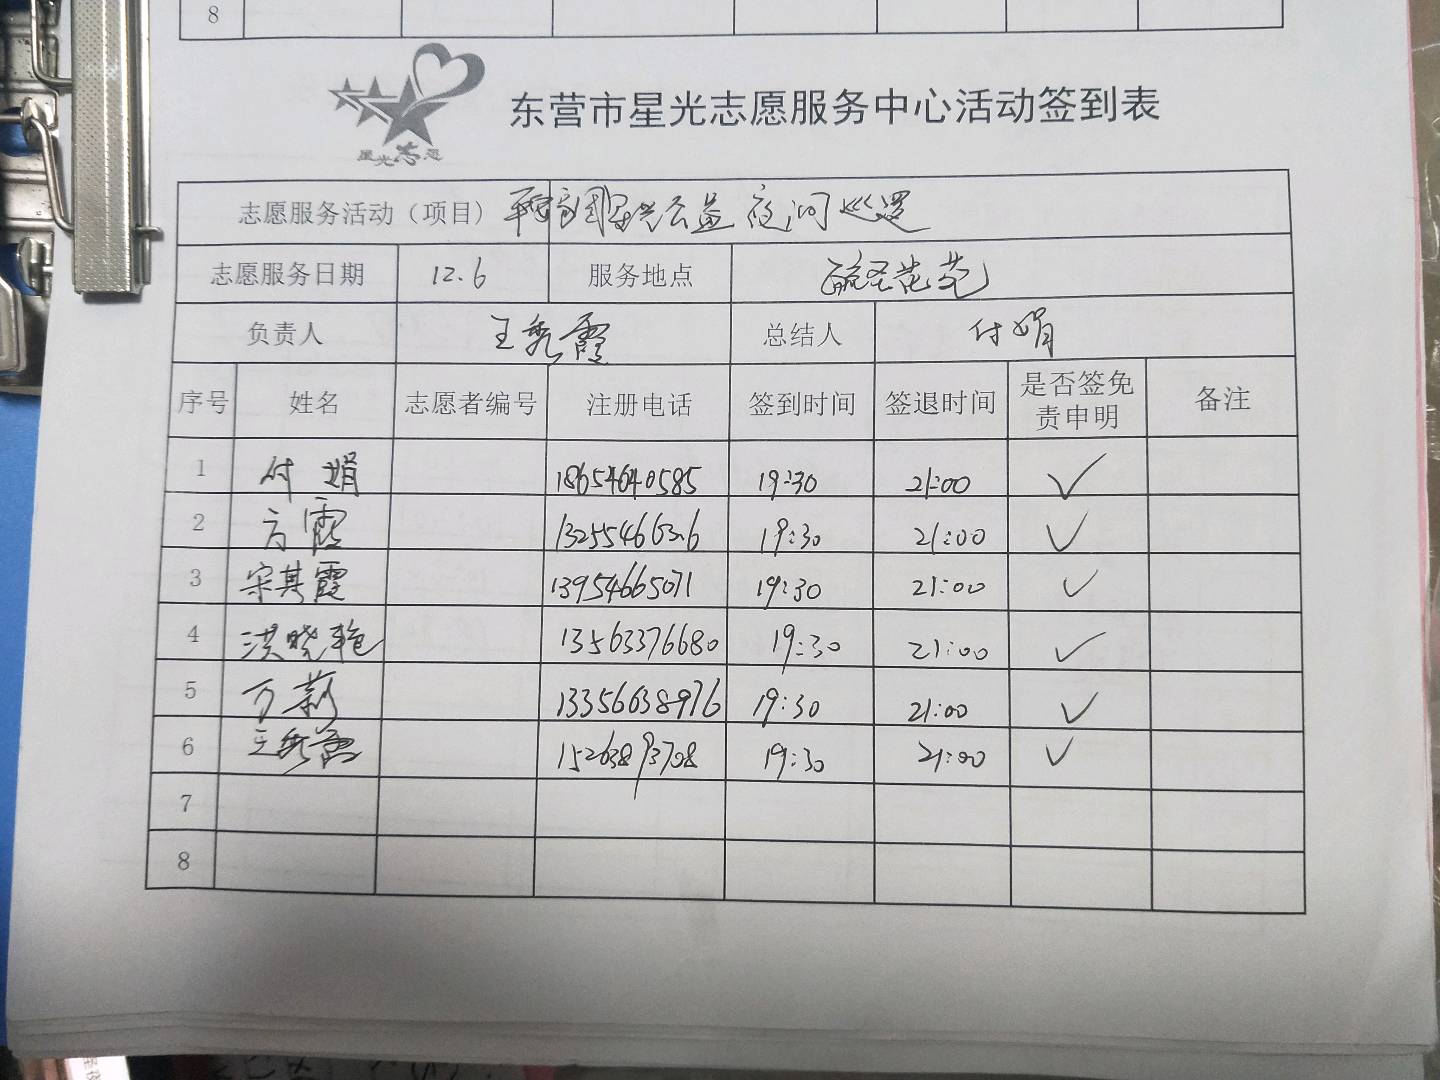 8
星光志愿
东营市星光志愿服务中心活动签到表
志愿服务活动（项目） 平安家园星光公益夜间巡逻
志愿服务日期 12.6 服务地点 花苑
负责人 王秀霞 总结人 付娟
序号 姓名 志愿者编号 注册电话 签到时间 签退时间 是否签免责申明 备注
1 付娟 18654640585 19:30 21:00 ✓
2 方霞 13255466326 19:30 21:00 ✓
3 宋其霞 13954665071 19:30 21:00 ✓
4 洪晓艳 13563376680 19:30 21:00 ✓
5 万莉 13356638976 19:30 21:00 ✓
6 王秀霞 15263893708 19:30 21:00 ✓
7
8